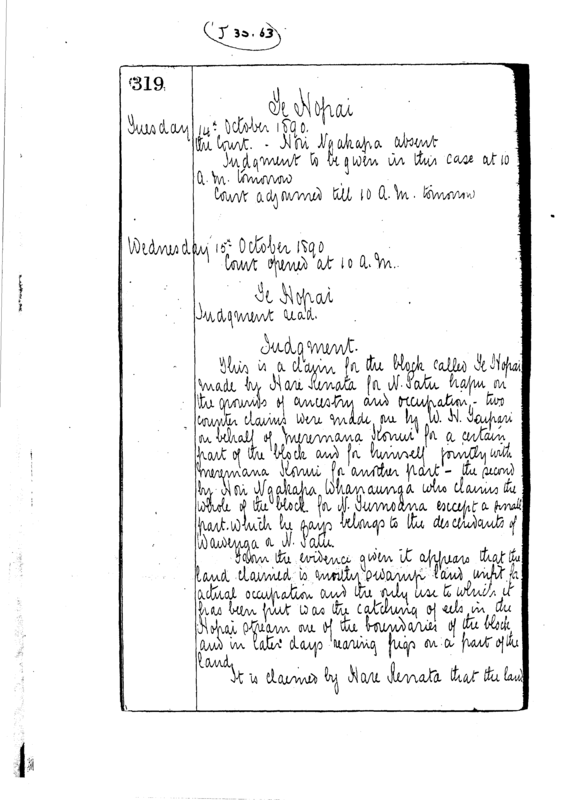 J 30.63
319
Te Hopai
Tuesday 14th October 1890.
The Court. - Hori Ngakapa absent
Judgment to be given in this case at 10
A.M. tomorrow
Court adjourned till 10 A.M. tomorrow
Wednesday 15th October 1890
Court opened at 10 A.M.
Te Hopai
Judgment read.
Judgment.
This is a claim for the block called Te Hopai
made by Hare Renata for N. Patu hapu on
the grounds of ancestry and occupation - two
counter claims were made, one by W. H. Taipari
on behalf of Meremana Konui for a certain
part of the block and for himself jointly with
Meremana Konui for another part - the second
by Hori Ngakapa Whanaunga who claims the
whole of the block for N. Tumoana except a small
part which he says belongs to the descendants of
Wawenga or N. Patu.
From the evidence given it appears that the
land claimed is mostly swamp land unfit for
actual occupation and the only use to which it
has been put was the catching of eels in the
Hopai stream one of the boundaries of the block
and in later days rearing pigs on a part of the
land.
It is claimed by Hare Renata that the land